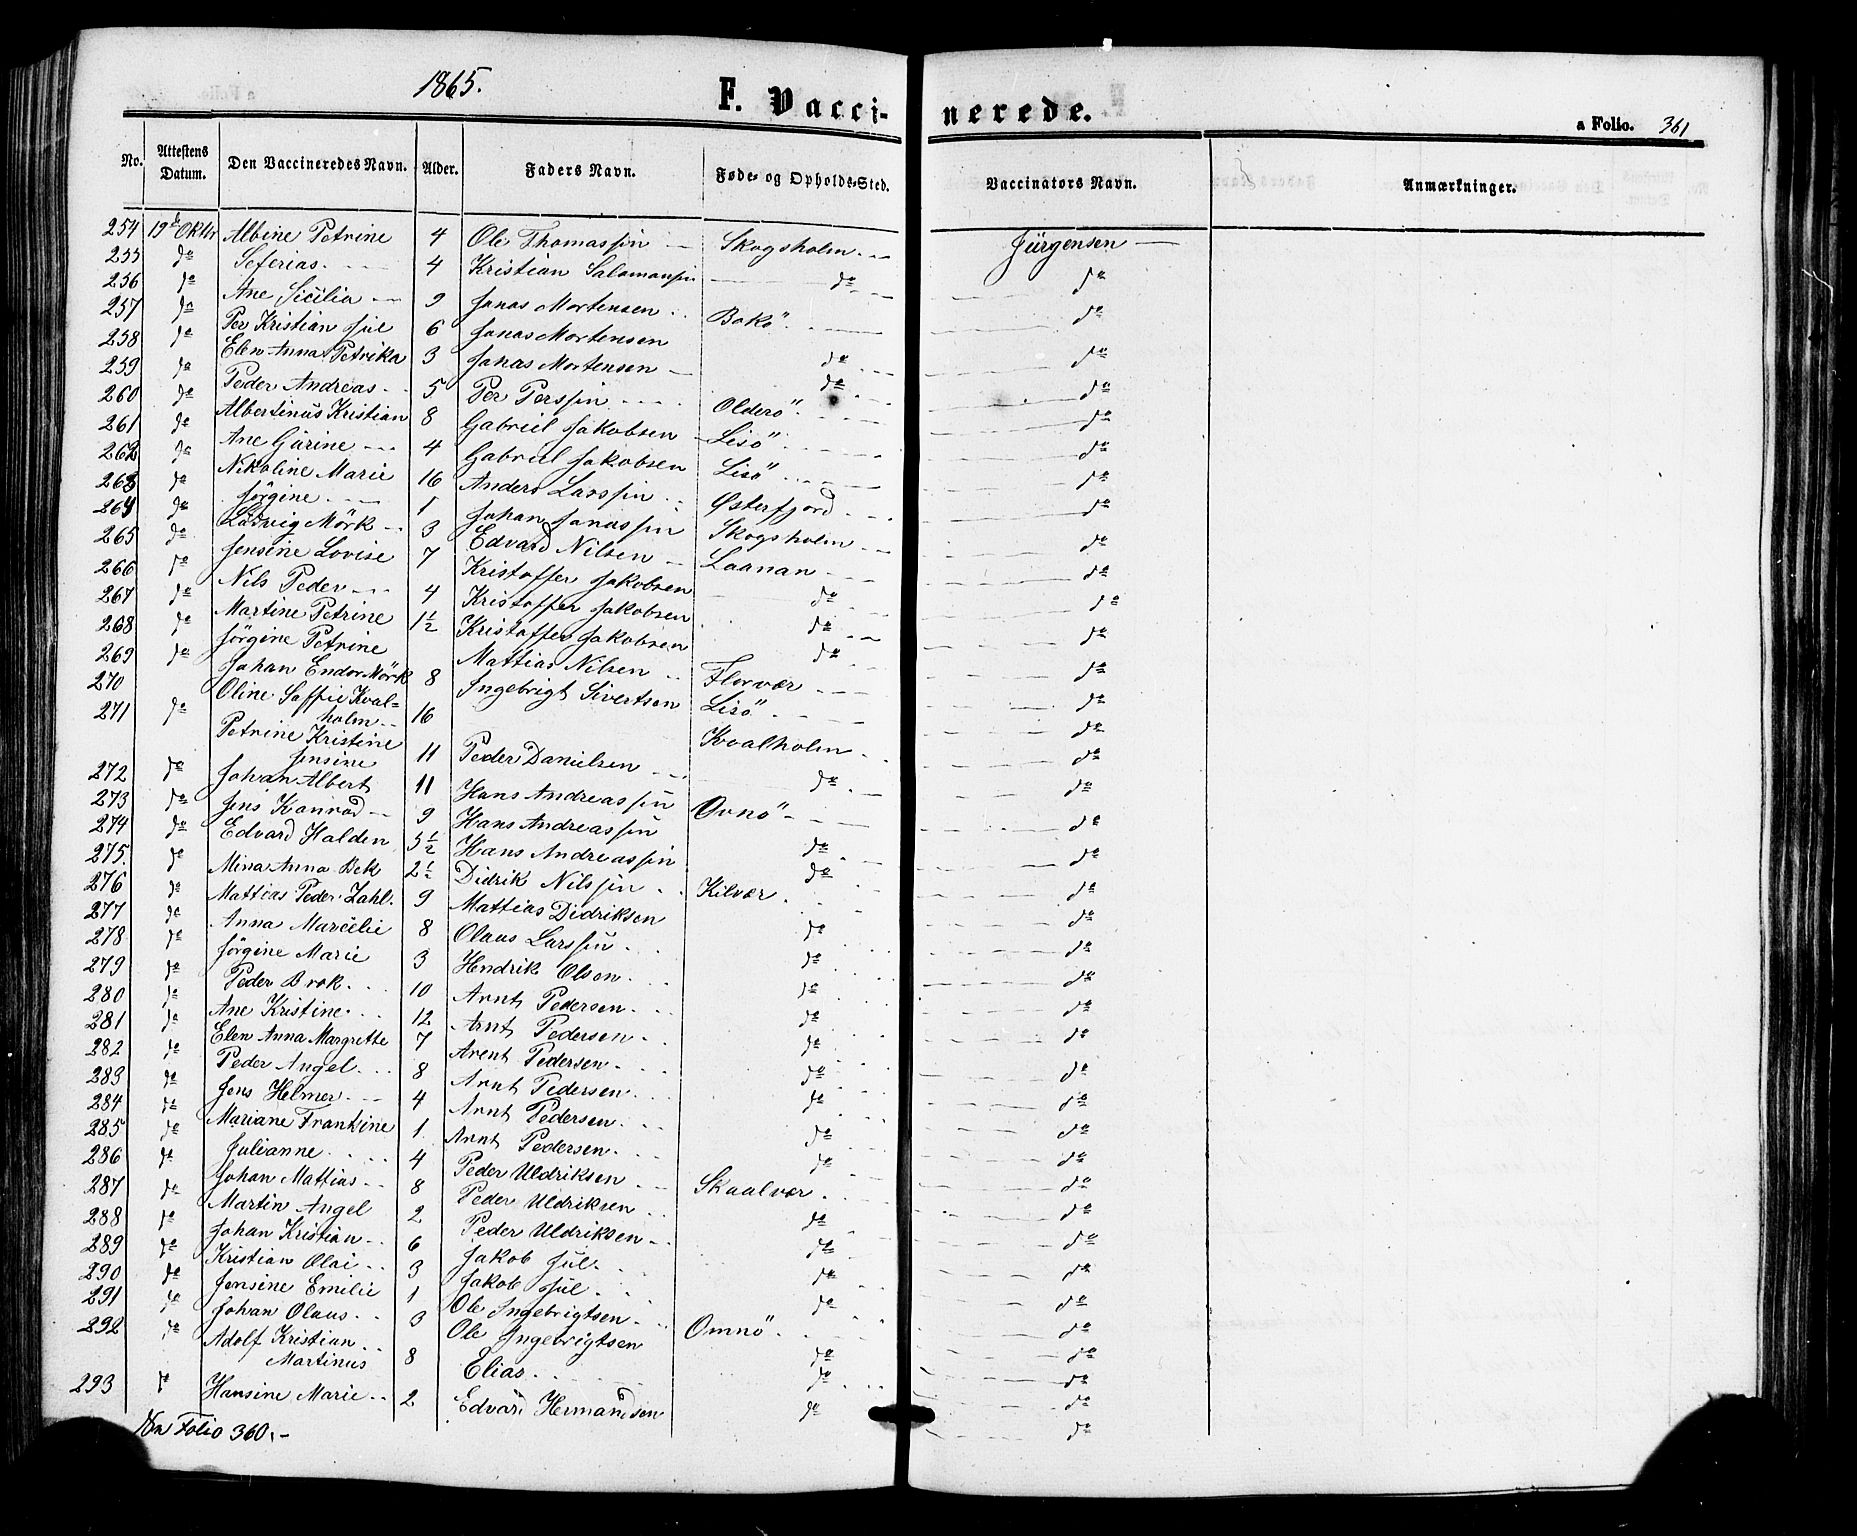 1865.
F. Vaccinerede.
a Folio. 361
No. Attestens Datum. Den Vaccineredes Navn. Alder. Faders Navn. Føde- og Opholds-Sted. Vaccinators Navn. Anmærkninger.
254 19de Oktbr Albine Petrine 4 Ole Thomassen Skogsholm Jürgensen
255 do Seferias 4 Kristian Salamonsen do do
256 do Ane Sicilia 9 Jonas Mortensen Bokö do
257 do Per Kristian Jül 6 Jonas Mortensen do do
258 do Elen Anna Petrika 3 Jonas Mortensen do do
259 do Peder Andreas 5 Per Perssen Olderö do
260 do Albertinus Kristian 8 Gabriel Jakobsen Lisö do
261 do Ane Gürine 4 Gabriel Jakobsen Lisö do
262 do Nikoline Marie 16 Anders Larssen Østerfjord do
263 do Jörgine 1 Johan Jonassen Skogsholm do
264 do Ludvig Mörk 3 Edvard Nilsen Laanan do
265 do Jensine Lovise 7 Kristoffer Jakobsen do do
266 do Nils Peder 4 Kristoffer Jakobsen do do
267 do Martine Petrine 1½ Kristoffer Jakobsen do do
268 do Jörgine Petrine Mattias Nilsen Florvær do
269 do Johan Endor Mörk 8 Ingebrigt Sivertsen Lisö do
270 Oline Soffie Kval-
holm 16 Kvalholm do
271 do Petrine Kristine
Jensine 11 Peder Danielsen do do
272 do Johan Albert 11 Hans Andreassen Ovnö do
273 do Jens Konrad 9 Hans Andreassen do do
274 do Edvard Halden 5½ Hans Andreassen do do
275. do Mina Anna Bek 2½ Didrik Nilssen Kilvær do
276 do Mattias Peder Zahl 9 Mattias Didriksen do do
277 do Anna Marcilie 8 Olaus Larssen do do
278 do Jörgine Marie 3 Hendrik Olsen do do
279 do Peder Brok 10 Arnt Pedersen do do
280 do Ane Kristine 12 Arnt Pedersen do do
281 do Elen Anna Margrethe 7 Arent Pedersen do do
282 do Peder Angel 8 Arnt Pedersen do do
283 do Jens Helmer 4 Arnt Pedersen do do
284 do Mariane Frantsine 1 Arnt Pedersen do do
285 do Julianne 4 Peder Uldriksen Skaalvær do
286 do Johan Mattias 8 Peder Uldriksen do do
287 do Martin Angel 2 Peder Uldriksen do do
288 do Johan Kristian 6 Jakob Jul do do
289 do Kristian Olai 3 Jakob Jul do do
290 do Jensine Emilie 1 Ole Ingebrigtsen Omnö do
291 do Johan Olaus 3 Ole Ingebrigtsen do do
292 do Adolf Kristian
Martinus 8 Elias do do
293 do Hansine Marie 2 Edvard Hermandsen do do
Folio 360.-